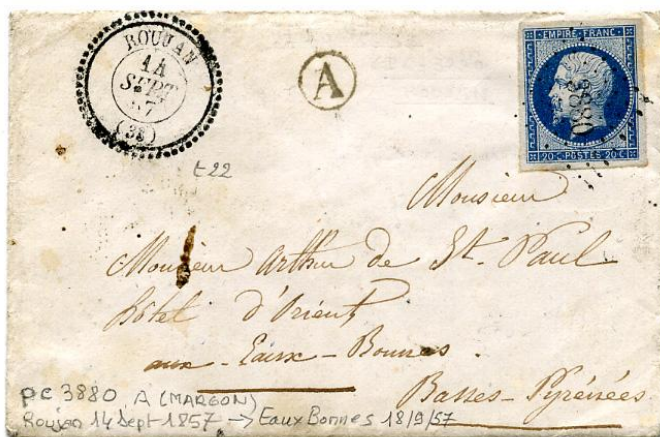 ROUJAN
14
SEPT
57
(33)
A
EMPIRE·FRANC·
3880
20c POSTES 20c
t22
Monsieur
Monsieur Arthur de St. Paul
hôtel d'Orient
aux-Eaux-Bonnes.
Basses-Pyrénées
PC 3880 A (MARGON)
Roujan 14 Sept 1857 → Eaux Bonnes 18/9/57